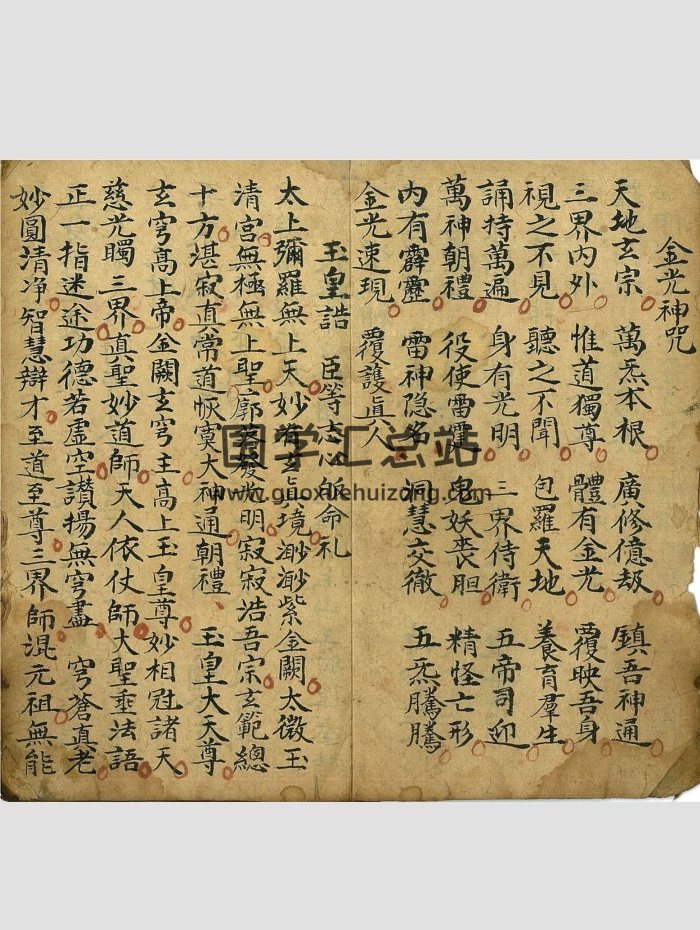 金光神咒
天地玄宗 萬炁本根 廣修億劫 鎮吾神通
三界內外 惟道獨尊 體有金光 覆映吾身
視之不見 聽之不聞 包羅天地 養育羣生
誦持萬遍 身有光明 三界侍衛 五帝司迎
萬神朝禮 役使雷霆 鬼妖喪胆 精怪亡形
內有霹靂 雷神隐名 洞慧交徹 五炁騰騰
金光速現 覆護眞人
玉皇誥 臣等志心皈命礼
太上彌羅無上天妙有玄眞境渺渺紫金闕太微玉
清宮無極無上聖廓落發光明寂寂浩吾宗玄範總
十方湛寂真常道恢寞大神通朝禮 玉皇大天尊
玄穹髙上帝金闕玄穹主髙上玉皇尊妙相冠諸天
慈光矚 三界真聖妙道師天人依仗師大聖垂法語
正一指迷途功德若虛空讃揚無穹盡 穹蒼直老
妙圓清净智慧辯才至道至尊三界師混元祖無能
国学汇总站
www.guoxuehuizong.com